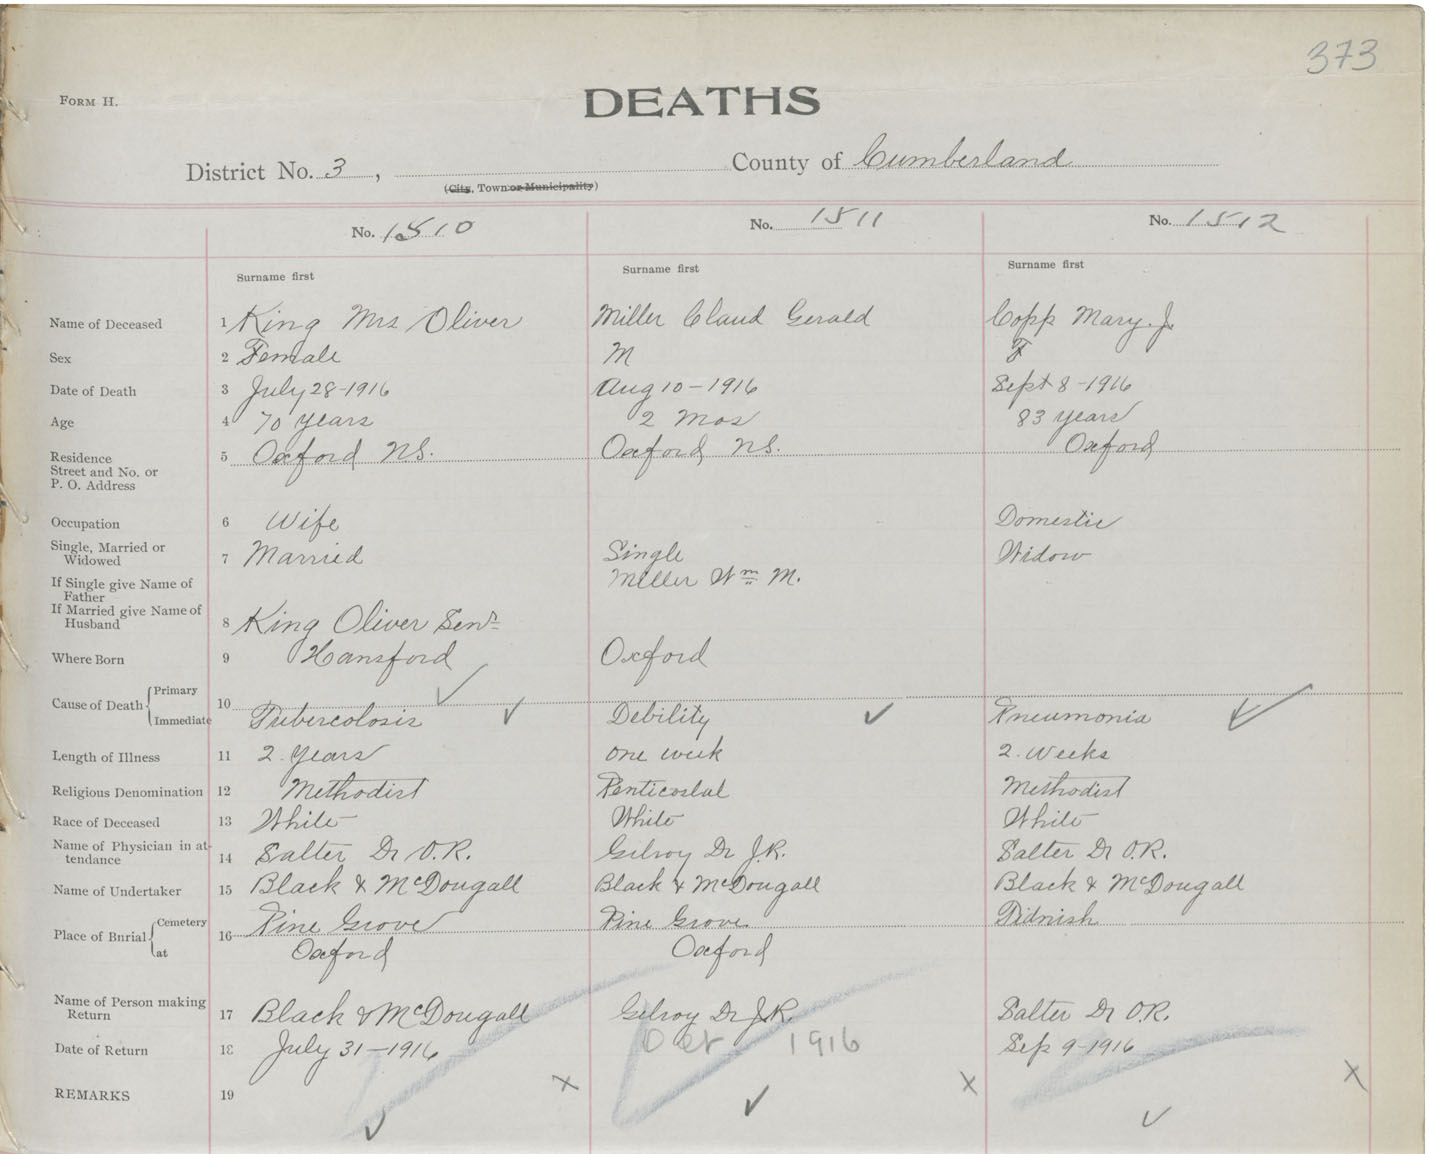 373
Form H.
DEATHS
District No. 3, County of Cumberland
(City, Town or Municipality)
No. 1510 No. 1511 No. 1512
Surname first Surname first Surname first
Name of Deceased 1 King Mrs Oliver Miller Claud Gerald Copp Mary. J.
Sex 2 Female M F
Date of Death 3 July 28-1916 Aug 10-1916 Sept 8-1916
Age 4 70 years 2 Mos 83 years
Residence 5 Oxford N.S. Oxford N.S. Oxford
Street and No. or
P. O. Address
Occupation 6 Wife Domestic
Single, Married or
Widowed 7 Married Single Widow
If Single give Name of Miller Wm M.
Father
If Married give Name of
Husband 8 King Oliver Senr
Where Born 9 Hansford Oxford
Cause of Death Primary 10
Immediate Tubercolosis Debility Pneumonia
Length of Illness 11 2 Years one week 2. Weeks
Religious Denomination 12 Methodist Penticostal Methodist
Race of Deceased 13 White White White
Name of Physician in at-
tendance 14 Salter Dr O.R. Gilroy Dr J.R. Salter Dr O.R.
Name of Undertaker 15 Black & McDougall Black & McDougall Black & McDougall
Place of Burial Cemetery 16 Pine Grove Pine Grove Tidnish
at Oxford Oxford
Name of Person making
Return 17 Black & McDougall Gilroy Dr J.R. Salter Dr O.R.
Date of Return 18 July 31-1916 Oct 1916 Sep 9-1916
REMARKS 19 x x x